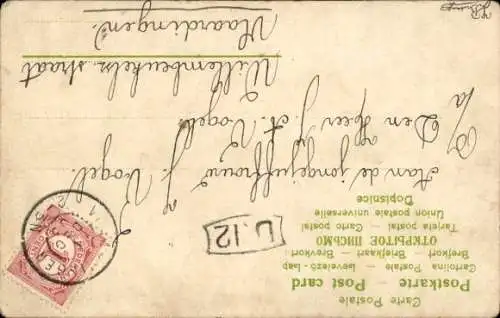 Carte Postale
Postkarte — Post card
Cartolina Postale — Levelező-Lap
Brefkort — Briefkaart — Brevkort
ОТКРЫТОЕ ПИСЬМО
Tarjeta postal — Carto postal
Union postale universelle
Dopisnice
Aan de jongejuffrouw J. Vogel.
p/a
Den Heer J. A. Vogel
Willembeukelsz. straat
Vlaardingen.
U.12